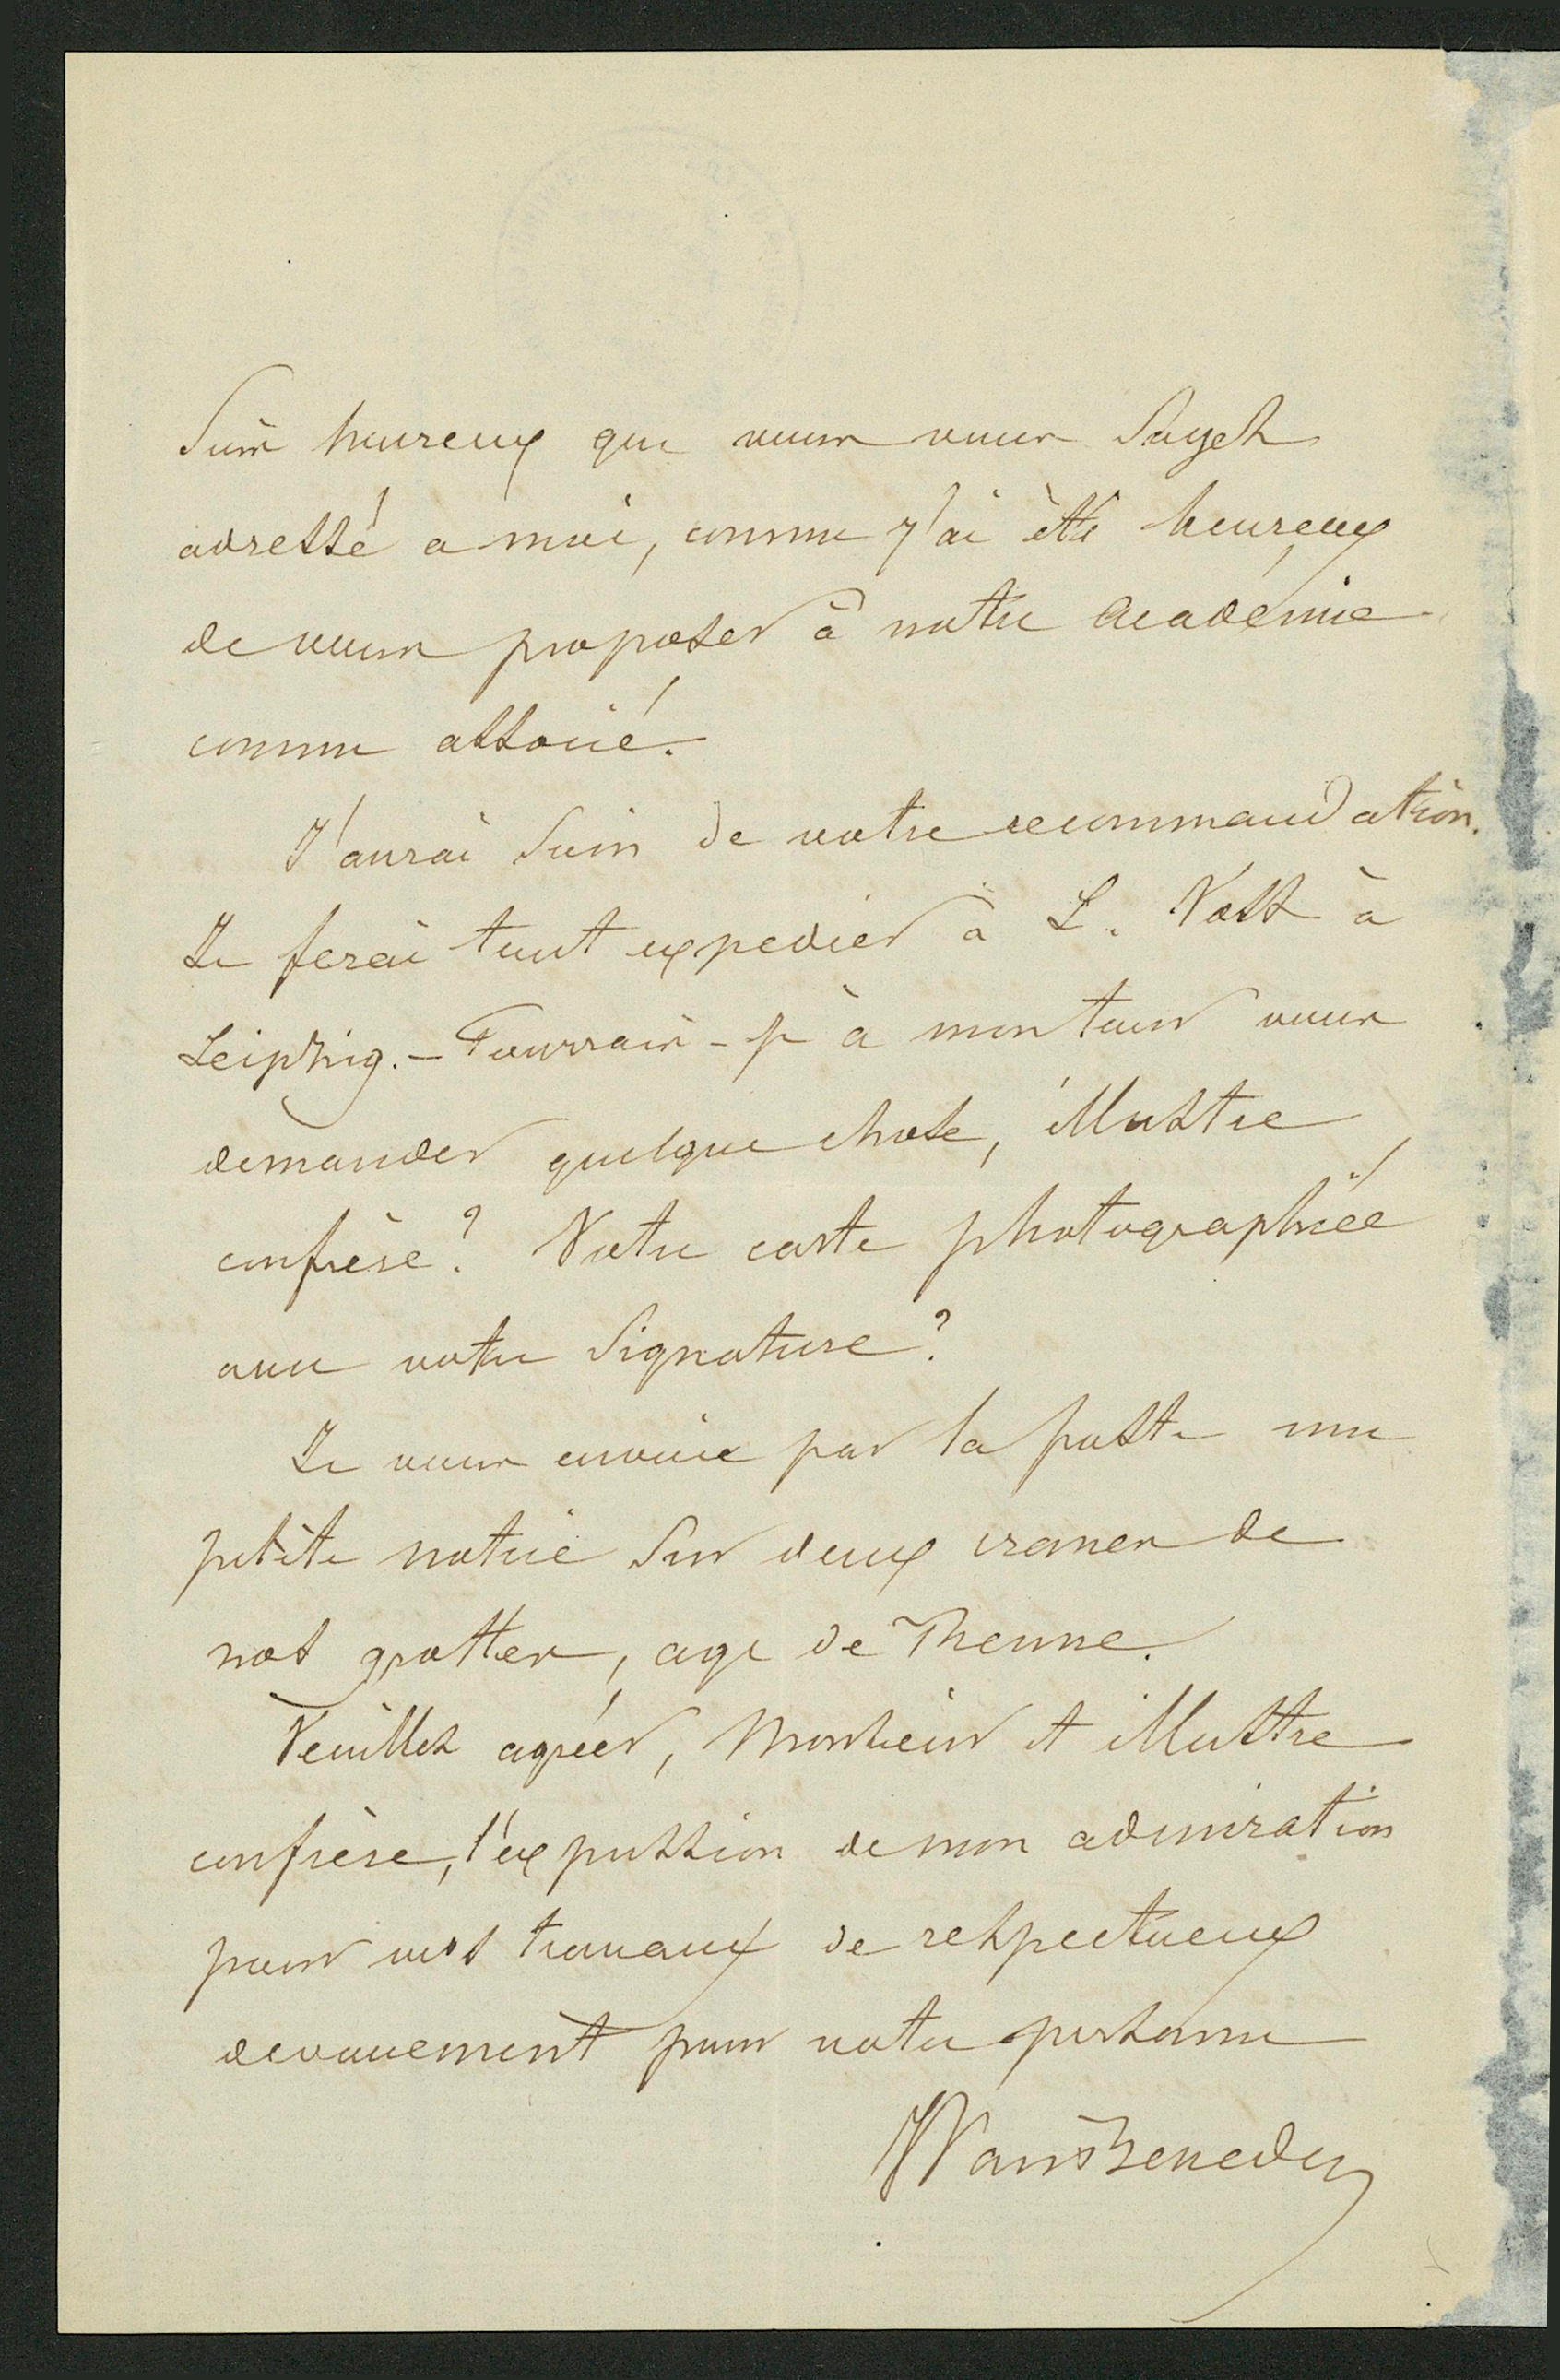 suis heureux que vous vous soyez
adressé a moi, comme j'ai été heureux
de vous proposer à notre académie
comme associé.
J'aurai soin de votre recommandation.
Je ferai tout expedier à L. Voss à
Leipzig. - Pourrais-je à mon tour vous
demander quelque chose, illustre
confrère? Votre carte photographiée
avec votre signature?
Je vous envoie par la poste une
petite notice sur deux cranes de
nos grottes, age de Renne.
Veuillez agréer, Monsieur et illustre
confrère, l'expression de mon admiration
pour vos travaux de respectueux
devouement pour votre personne
VanBeneden